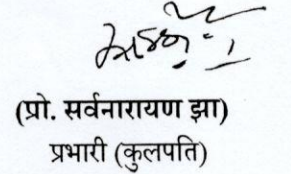 (प्रो. सर्वनारायण झा)
प्रभारी (कुलपति)